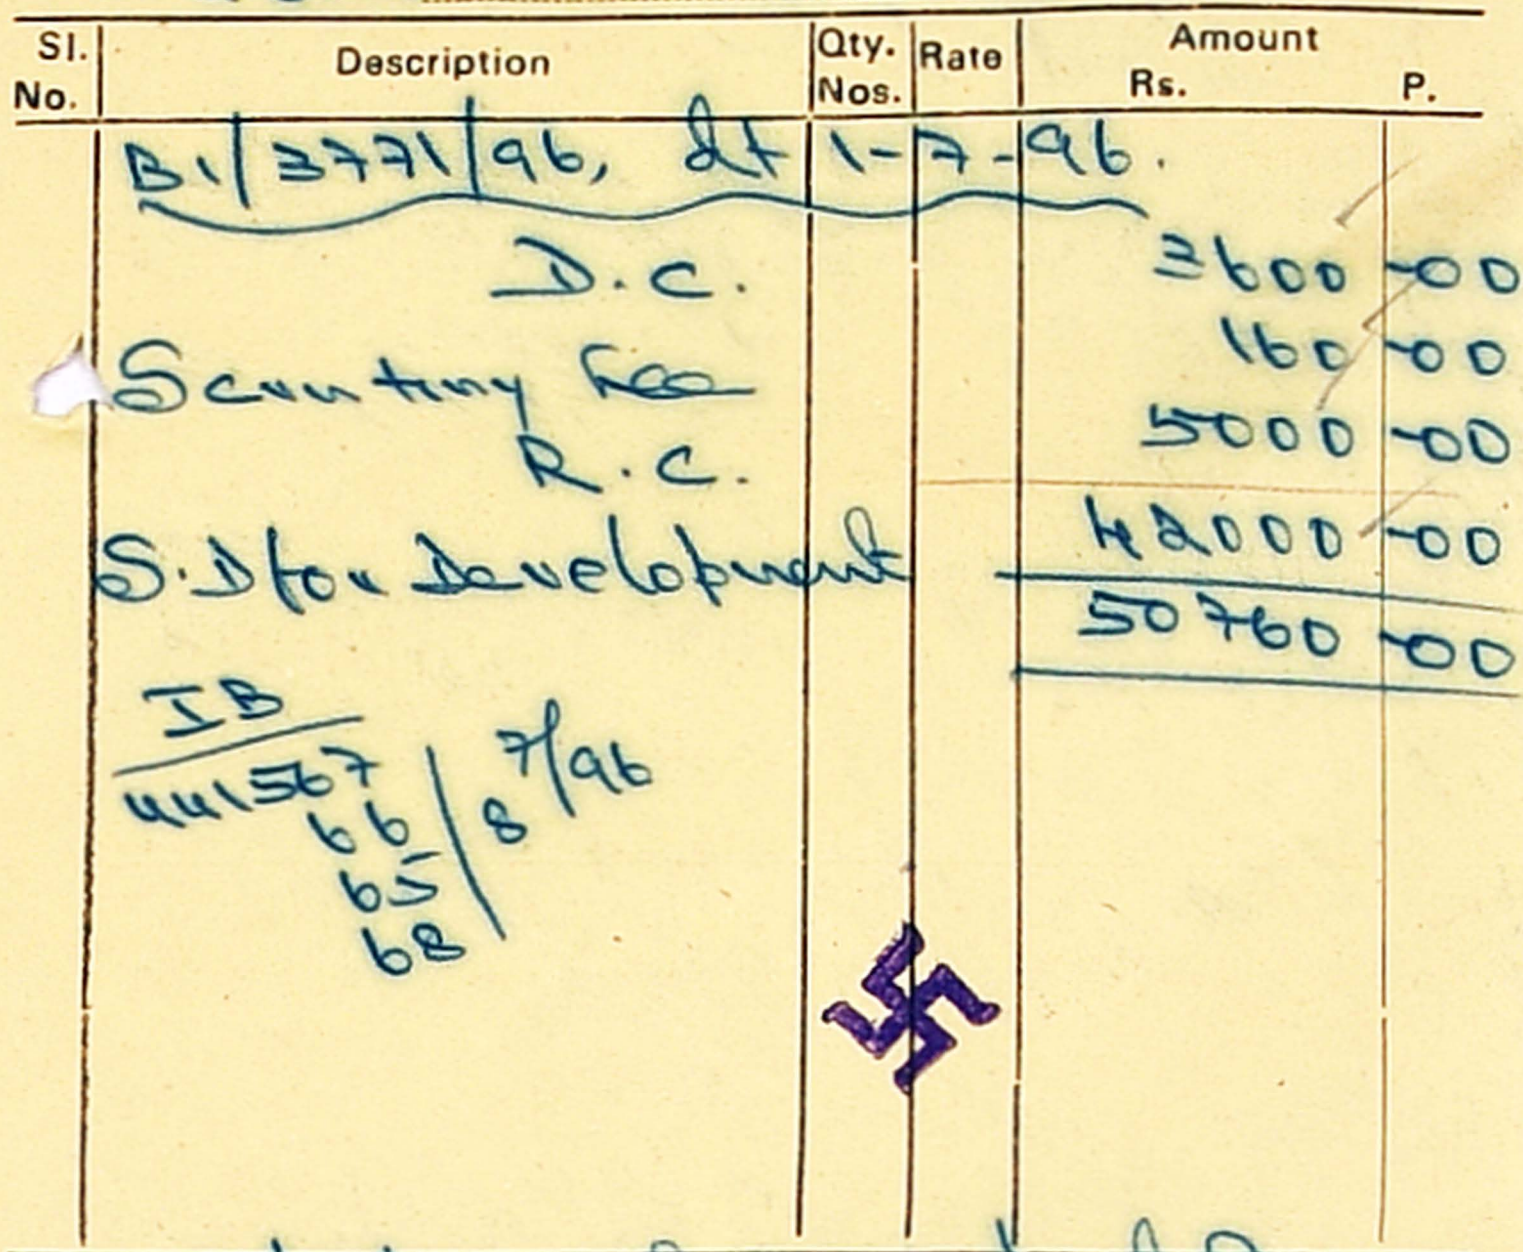 Sl. No. Description Qty. Nos. Rate Amount Rs. P.
B1/3771/96, dt 1-7-96.
D.C. 3600-00
Scrutiny Fee 160-00
R.C. 5000-00
S.D for Development 42000-00
50760-00
IB
441567 7/96
66 8
65
68